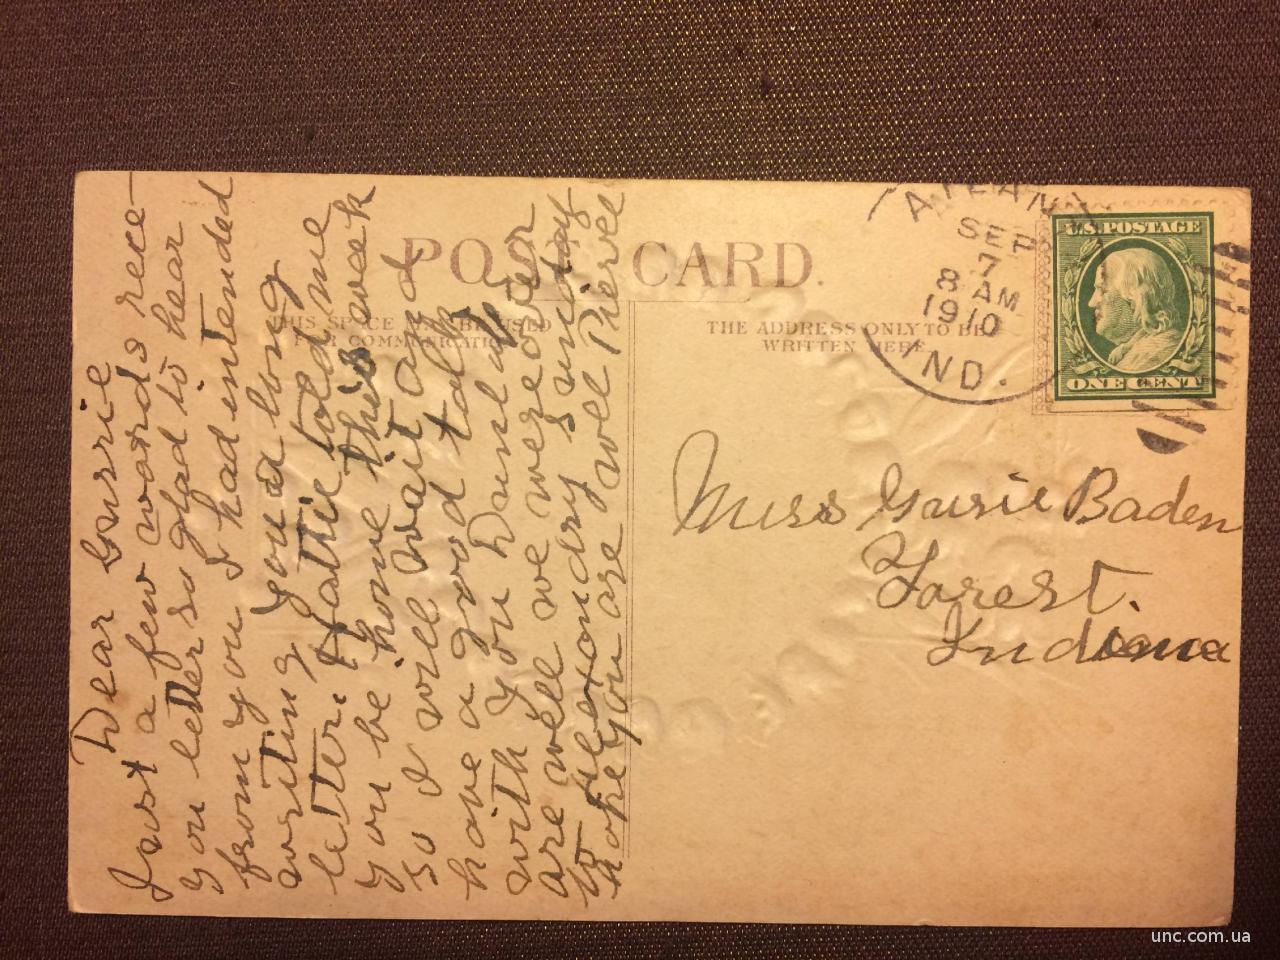 POST CARD.
THIS SPACE MAY BE USED
FOR COMMUNICATION
THE ADDRESS ONLY TO BE
WRITTEN HERE
ATLANTA
SEP
7
8 AM
1910
IND.
U.S. POSTAGE
ONE CENT
Miss Gusie Baden
Forest.
Indiana
Dear Gussie
Just a few words rece-
you letter so glad to hear
from you I had intended
writing you a long
letter. Hattie told me
you be home this week
so I will wait and
have a good talk
with you Dunlaps
are well we were over
to Sunday
hope you are well
unc.com.ua